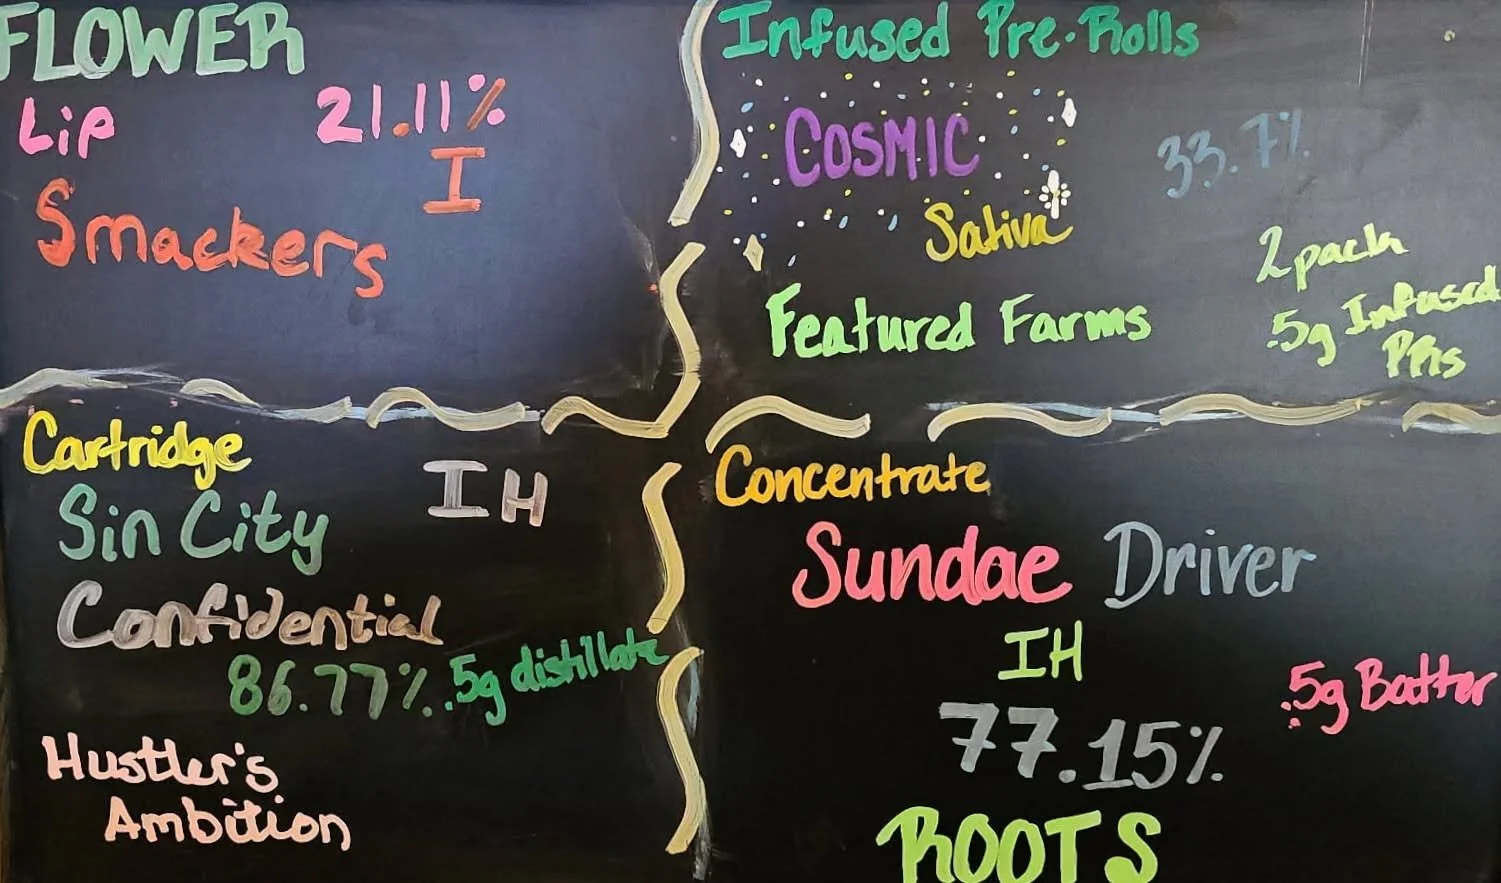 FLOWER
Lip 21.11%
I
Smackers
Infused Pre-Rolls
COSMIC 33.7%
Sativa
2 pack
Featured Farms .5g Infused
PRs
Cartridge
IH
Sin City
Confidential
86.77% .5g distillate
Hustler's
Ambition
Concentrate
Sundae Driver
IH
.5g Batter
77.15%
ROOTS